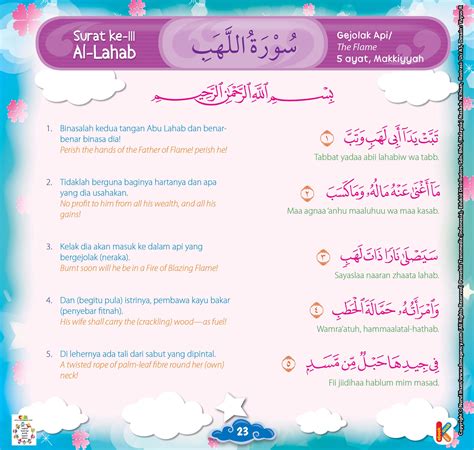 Surat ke-111
Al-Lahab
سُورَةُ اللَّهَبِ
Gejolak Api/
The Flame
5 ayat, Makkiyyah
بِسْمِ اللهِ الرَّحْمٰنِ الرَّحِيْمِ
1. Binasalah kedua tangan Abu Lahab dan benar-
benar binasa dia!
Perish the hands of the Father of Flame! perish he!
تَبَّتْ يَدَآ اَبِيْ لَهَبٍ وَّتَبَّ ١
Tabbat yadaa abii lahabiw wa tabb.
2. Tidaklah berguna baginya hartanya dan apa
yang dia usahakan.
No profit to him from all his wealth, and all his
gains!
مَآ اَغْنٰى عَنْهُ مَالُهٗ وَمَا كَسَبَ ٢
Maa agnaa 'anhu maaluhuu wa maa kasab.
3. Kelak dia akan masuk ke dalam api yang
bergejolak (neraka).
Burnt soon will he be in a Fire of Blazing Flame!
سَيَصْلٰى نَارًا ذَاتَ لَهَبٍ ٣
Sayaslaa naaran zhaata lahab.
4. Dan (begitu pula) istrinya, pembawa kayu bakar
(penyebar fitnah).
His wife shall carry the (crackling) wood—as fuel!
وَّامْرَاَتُهٗ حَمَّالَةَ الْحَطَبِ ٤
Wamra'atuh, hammaalatal-hathab.
5. Di lehernya ada tali dari sabut yang dipintal.
A twisted rope of palm-leaf fibre round her (own)
neck!
فِيْ جِيْدِهَا حَبْلٌ مِّنْ مَّسَدٍ ٥
Fii jiidihaa hablum mim masad.
23